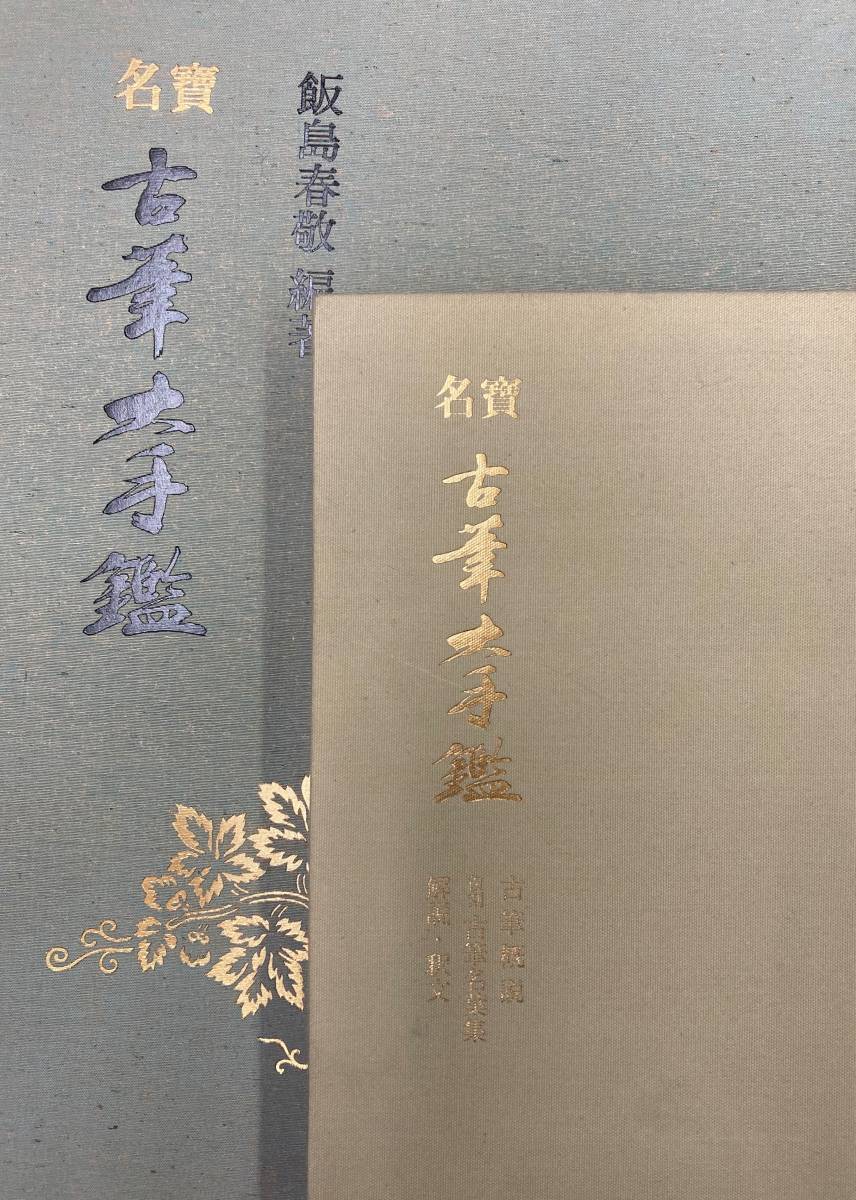 飯島春敬 編著
名寶
古筆大手鑑
名寶
古筆大手鑑
古筆概説
古筆名葉集
解説・釈文